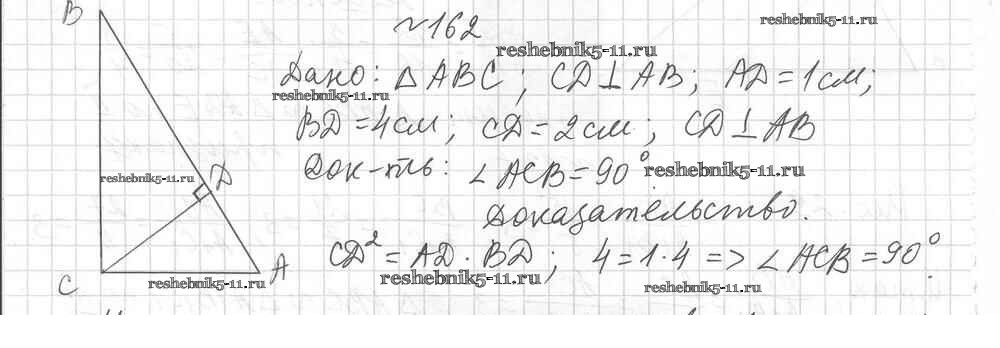 B
~162
reshebnik5-11.ru
reshebnik5-11.ru
Дано: △ABC; CD⊥AB; AD=1см;
reshebnik5-11.ru
BD=4см; CD=2см; CD⊥AB
Док-ть: ∠ACB=90°
reshebnik5-11.ru
reshebnik5-11.ru
D
Доказательство.
CD²=AD·BD; 4=1·4 => ∠ACB=90°.
reshebnik5-11.ru
C
A
reshebnik5-11.ru
reshebnik5-11.ru